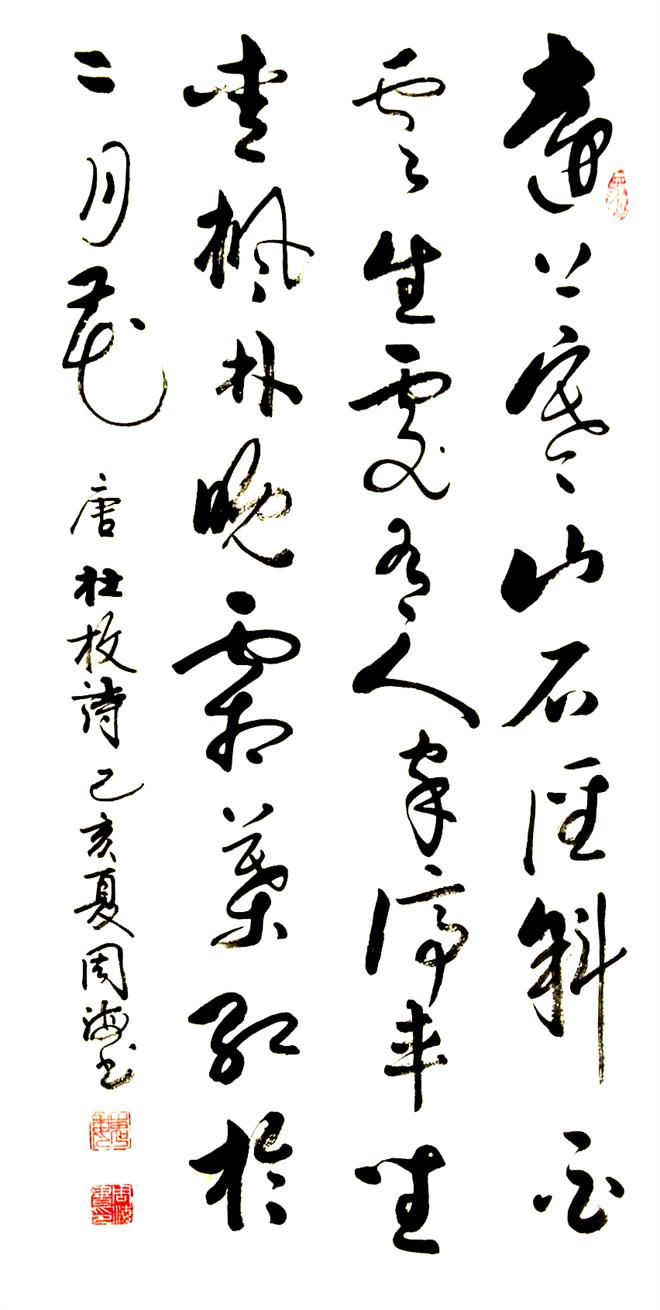 遠上寒山石徑斜白
雲生處有人家停車坐
愛楓林晚霜葉紅於
二月花 唐杜牧詩 己亥夏周海书